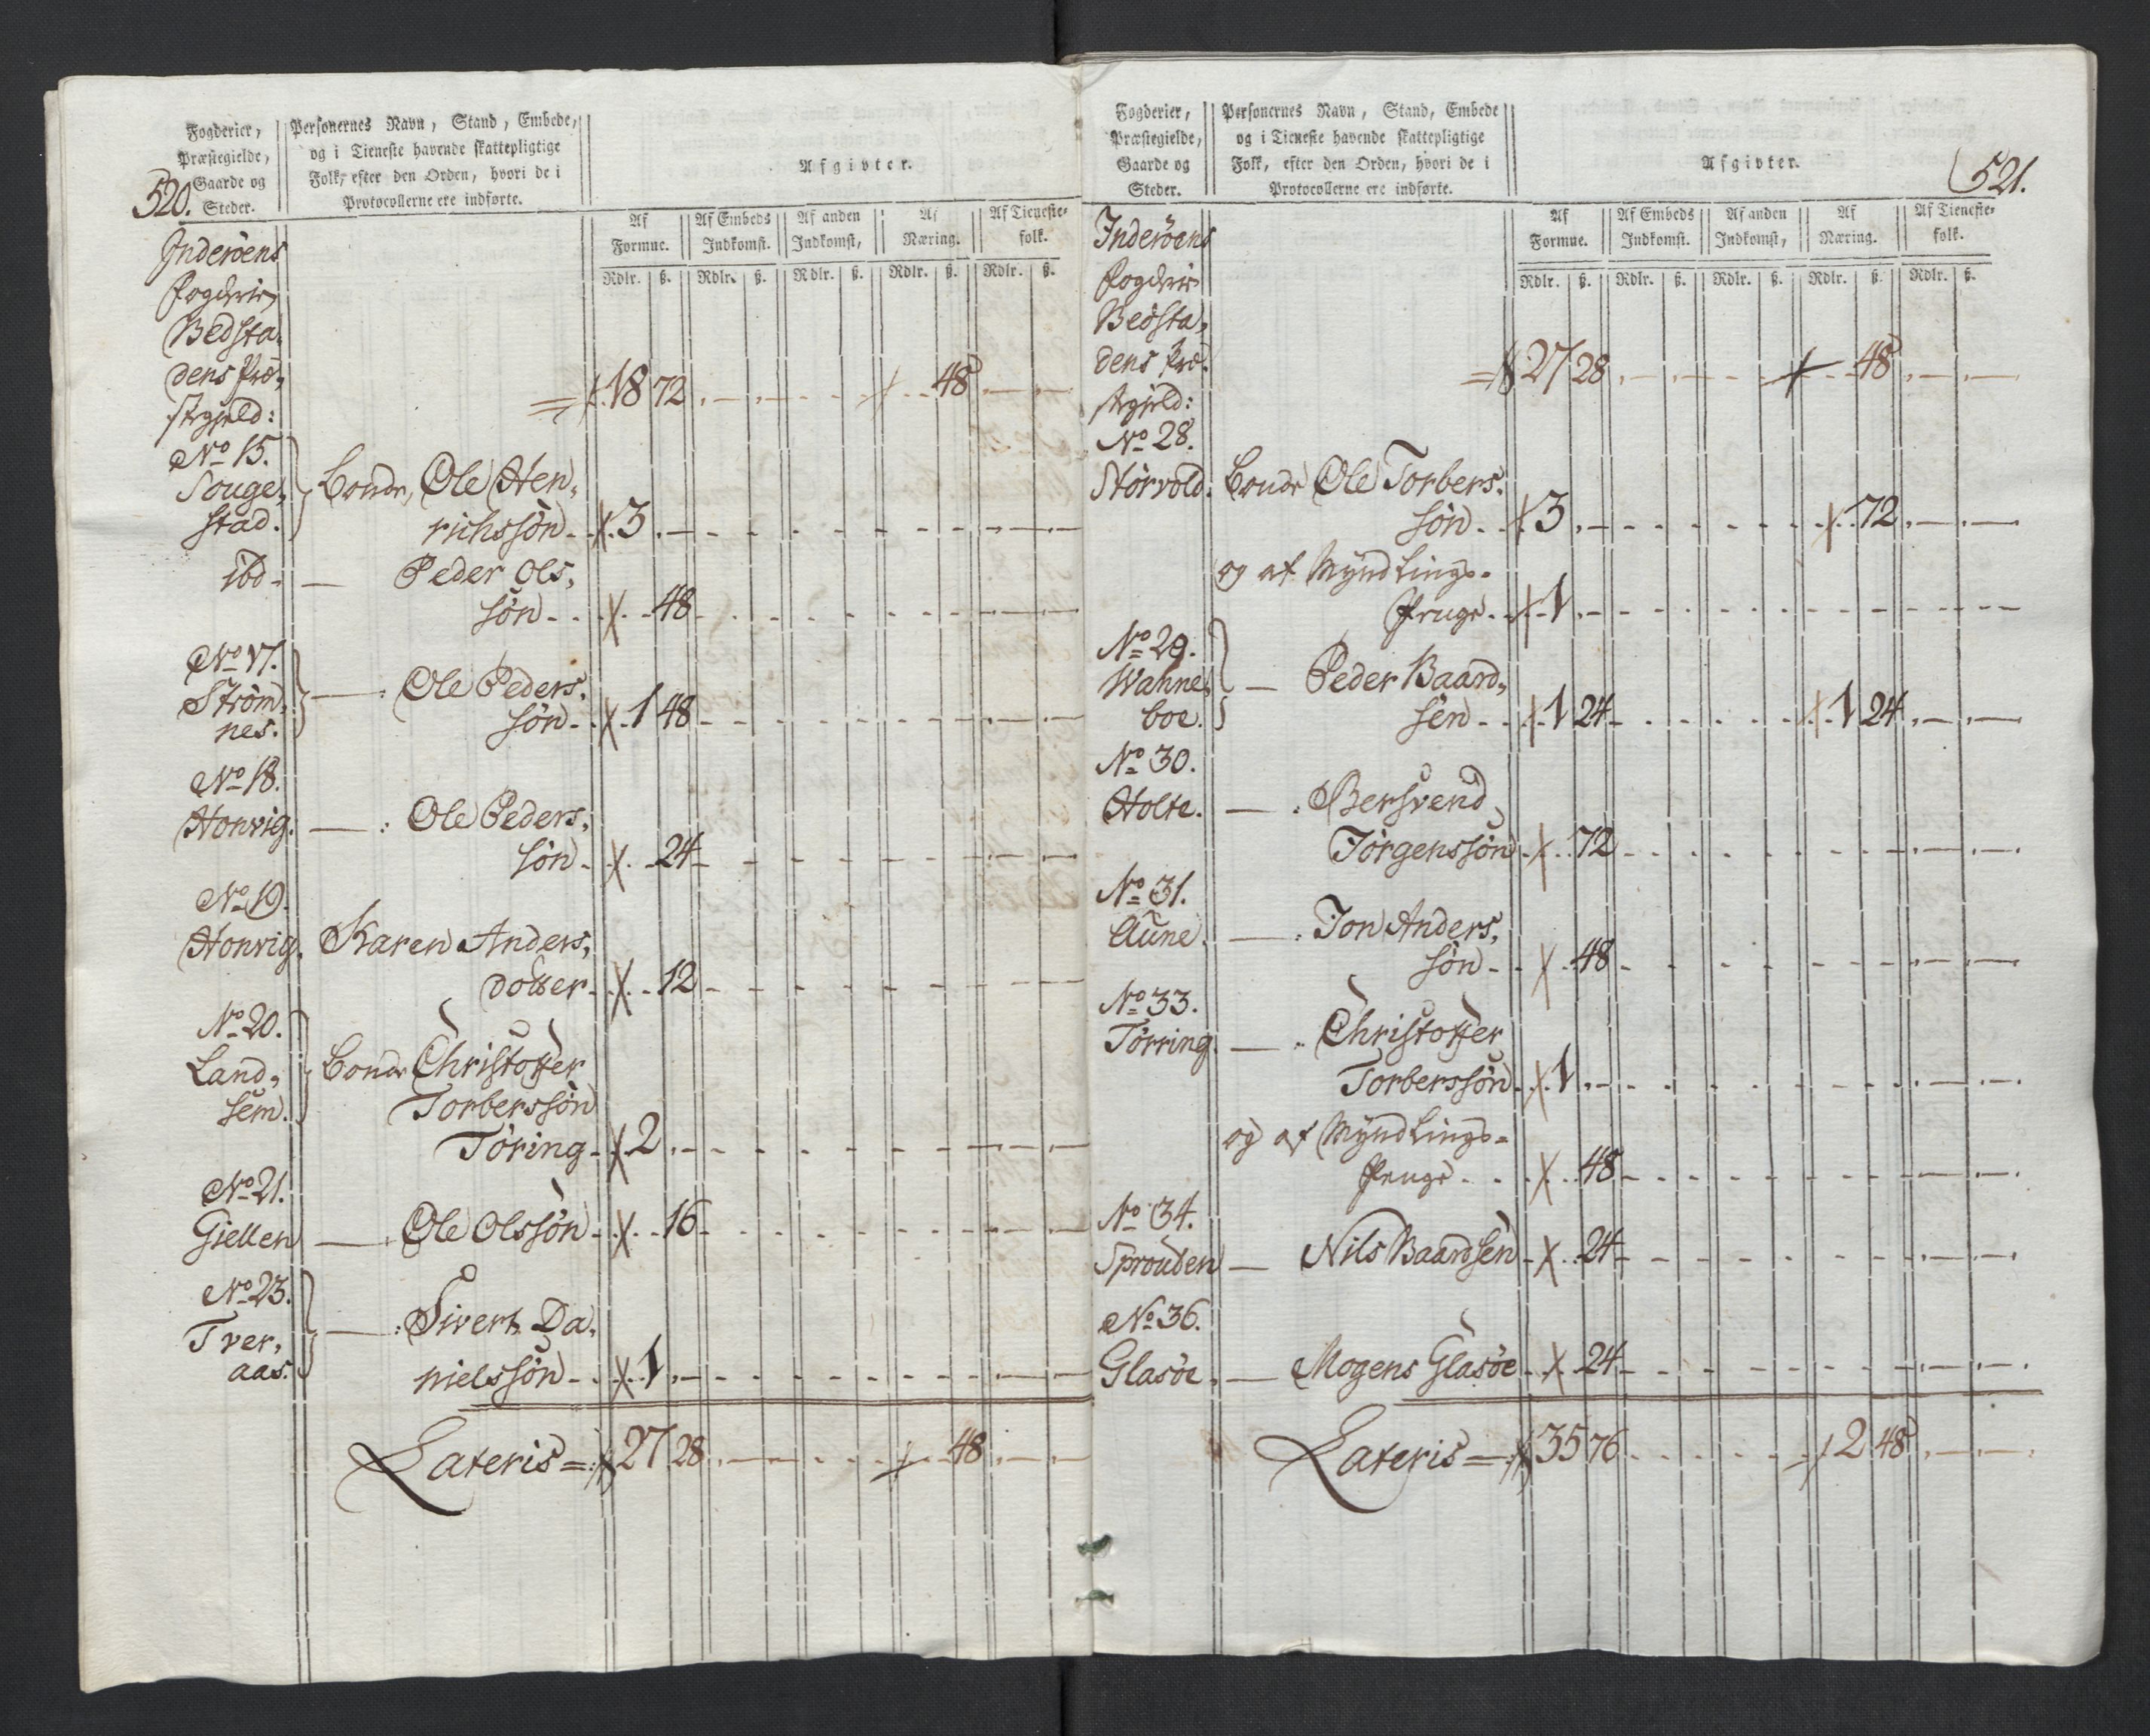 520.
Fogderier,
Præstegielde,
Gaarde og
Steder.
Personernes Navn, Stand, Embede,
og i Tieneste havende skattepligtige
Folk, efter den Orden, hvori de i
Protocollerne ere indførte.
Afgivter.
Af Formue. Af Embeds Indkomst. Af anden Indkomst, Af Næring. Af Tieneste-folk.
Rdlr. ß. Rdlr. ß. Rdlr. ß. Rdlr. ß. Rdlr. ß.
Inderöens
Fogderie,
Bedsta,
dens Præ,
stegield:
18 72 48
No 15.
Souge,
stad.
Bonde, Ole Hen,
richssön 3
ibd. — Peder Ols,
sön 48
No 17.
Ström,
nes.
— Ole Peders,
sön 1 48
No 18.
Honvig. — Ole Peders,
sön 24
No 19.
Honvig. Karen Anders,
dotter 12
No 20.
Land,
sem.
Bonde Christoffer
Torberssön
Töring 2
No 21.
Giellen — Ole Olssön 16
No 23.
Tver,
aas.
— Sivert Da,
nielssön 1
Lateris = 27 28 48
521.
Fogderier,
Præstegielde,
Gaarde og
Steder.
Personernes Navn, Stand, Embede
og i Tieneste havende skattepligtige
Folk, efter den Orden, hvori de i
Protocollerne ere indførte.
Afgivter.
Af Formue. Af Embeds Indkomst. Af anden Indkomst, Af Næring. Af Tieneste-folk.
Rdlr. ß. Rdlr. ß. Rdlr. ß. Rdlr. ß. Rdlr. ß.
Inderöens
Fogderie
Beösta,
dens Præ,
stegield:
27 28 48
No 28.
Störvold. Bonde Ole Torbers,
sön 3 72
og af Myndlings-
Penge 1
No 29.
Wahne,
boe.
— Peder Baard,
sen 1 24 1 24
No 30.
Holte. — Bersvend
Jörgenssön 72
No 31.
Aune. — Jon Anders,
sön 48
No 33.
Törring. — Christoffer
Torberssön 1
og af Myndlings-
Penge 48
No 34.
Sprouten — Nils Baardsen 24
No 36.
Glasöe. — Mogens Glasöe 24
Lateris = 35 76 2 48